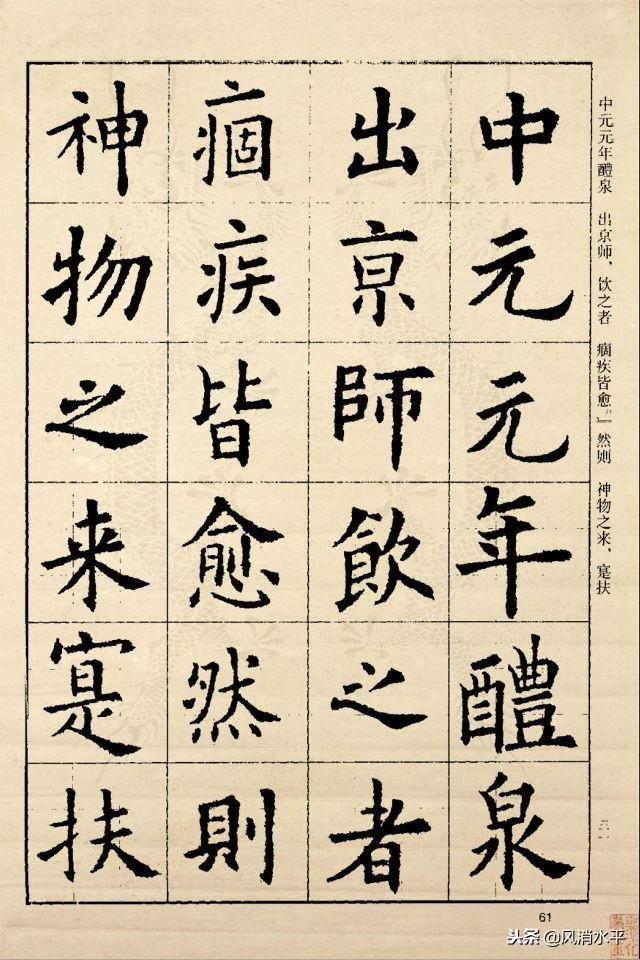 中元元年醴泉 出京师，饮之者 痼疾皆愈。』然则 神物之来，寔扶
中元元年醴泉
出亰師飲之者
痼疾皆愈然則
神物之来寔扶
61
头条 @风消水平